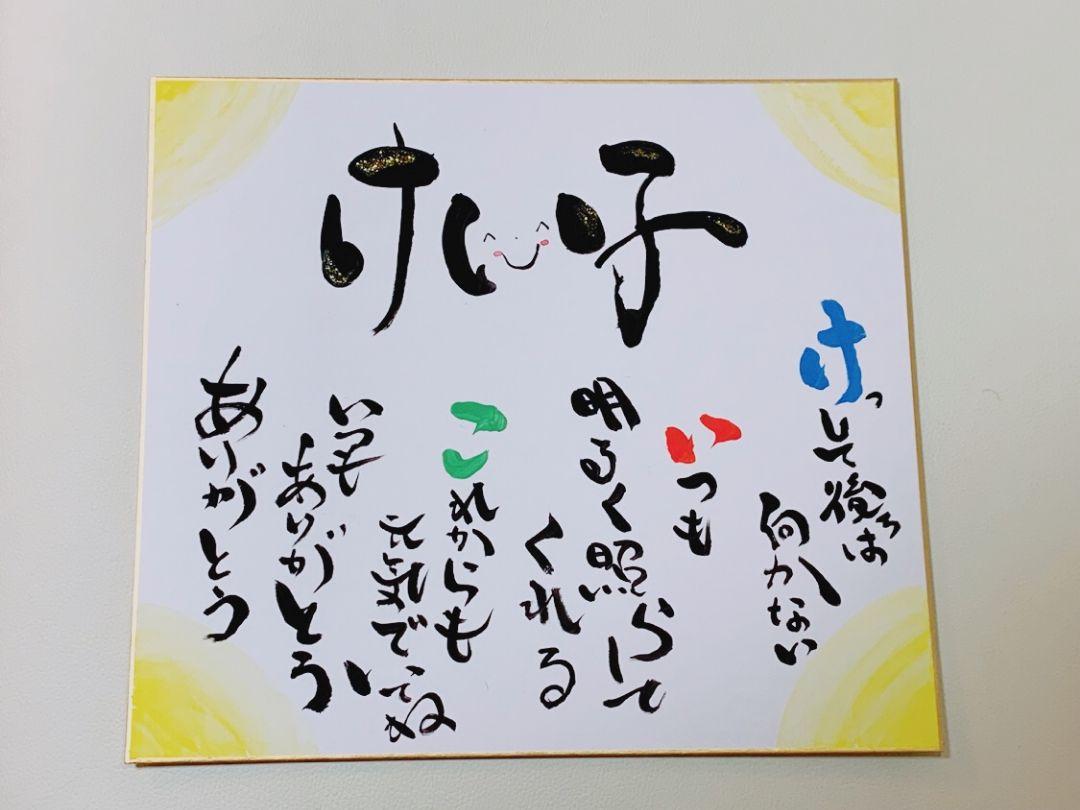 けい子
けっして後ろは
向かない
いつも
明るく照らして
くれる
これからも
元気でいてね
いつも
ありがとう
ありがとう